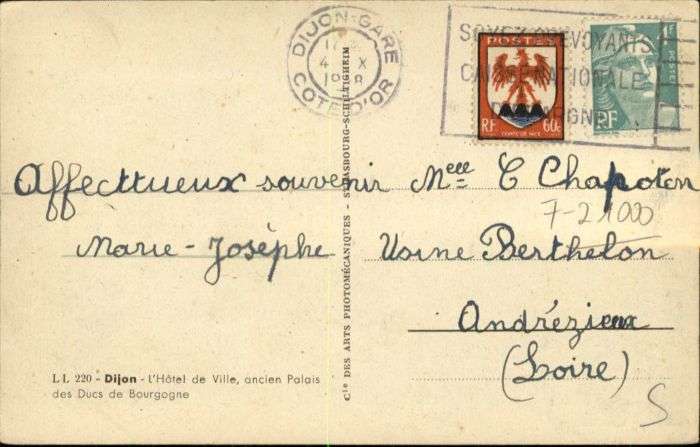 DIJON-GARE
4 X
COTE D'OR
SOYEZ PREVOYANTS
CAISSE NATIONALE
POSTES
RF 60c
COMTÉ DE NICE
RF
Affecttueux souvenir
Marie-Josèphe
Melle C Chapoton
7-21000
Usine Berthelon
Andrézieux
(Loire)
S
LL 220 - Dijon - L'Hôtel de Ville, ancien Palais
des Ducs de Bourgogne
Cie DES ARTS PHOTOMÉCANIQUES - STRASBOURG-SCHILTIGHEIM